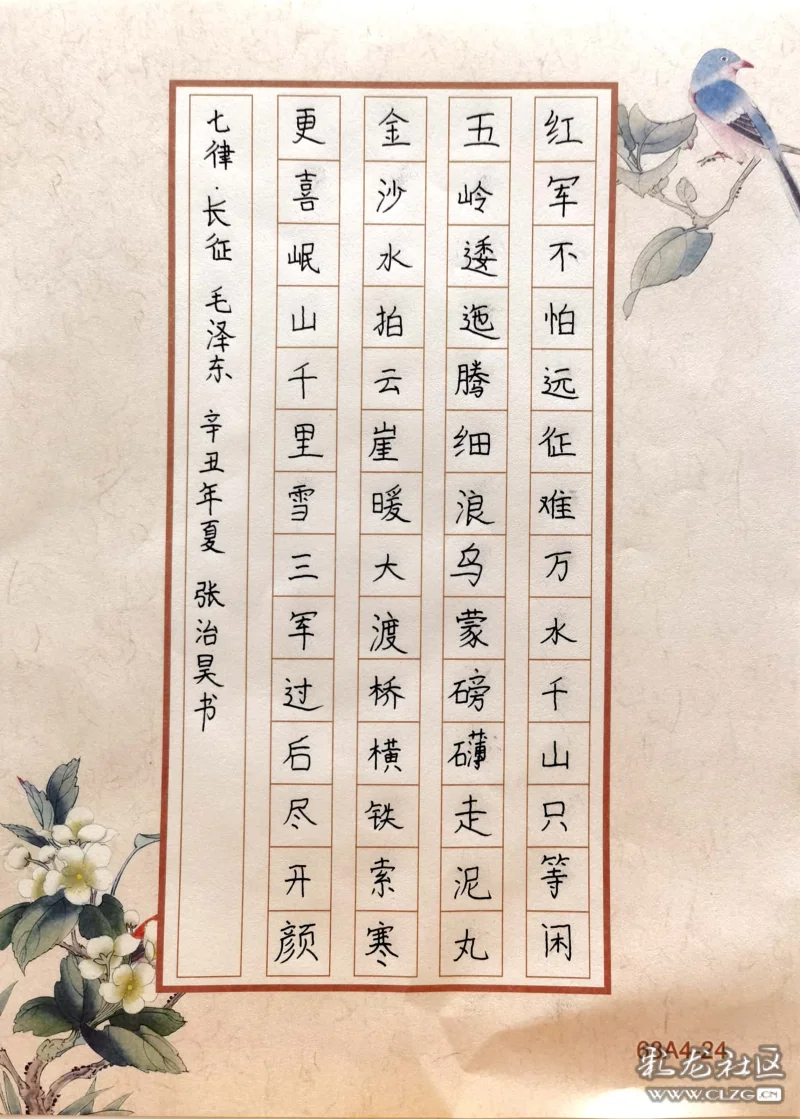 红军不怕远征难万水千山只等闲
五岭逶迤腾细浪乌蒙磅礴走泥丸
金沙水拍云崖暖大渡桥横铁索寒
更喜岷山千里雪三军过后尽开颜
七律·长征 毛泽东 辛丑年夏 张治昊书
63A4-24
彩龙社区
WWW.CLZG.CN